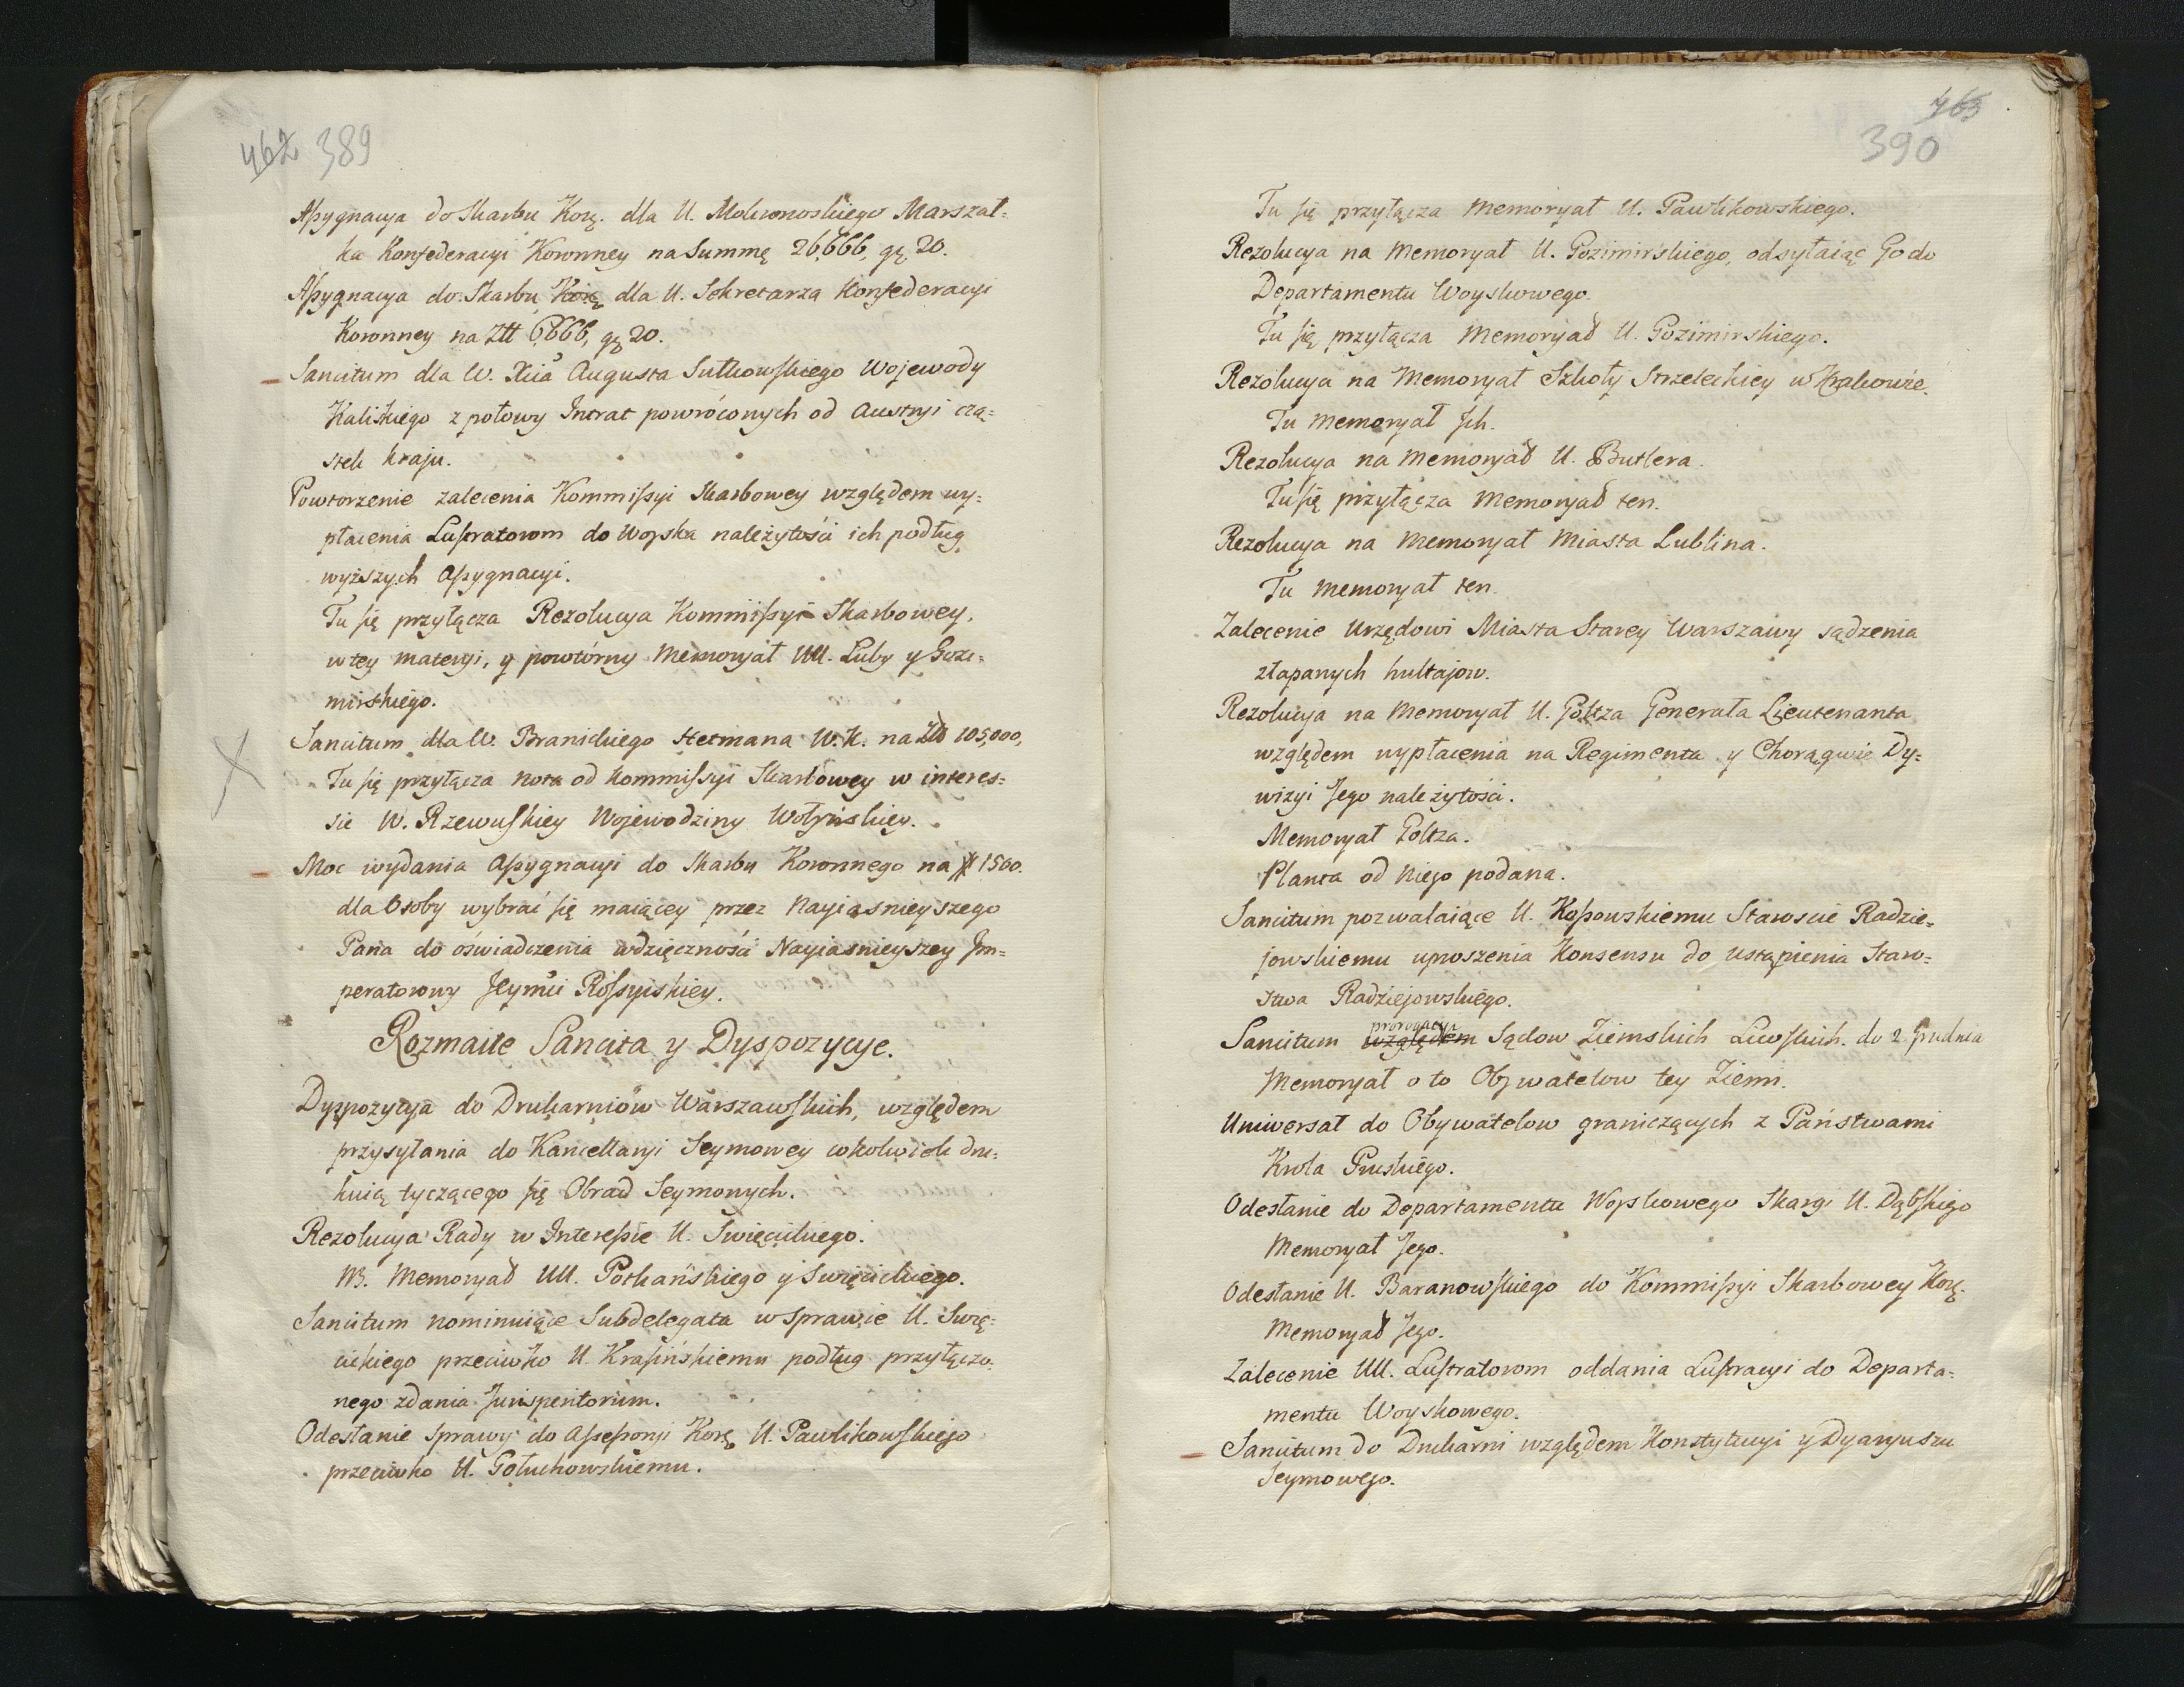 462 389
Assygnacya do Skarbu Korą. dla U. Mokronoskiego Marszał=
ka Konfederacyi Koronney na Summę 26,666, gꝫ 20.
Assygnacya do Skarbu Korą dla U. Sekretarza Konfederacyi
Koronney na Złł 6,666, gꝫ 20.
Sancitum dla W. Xcia Augusta Sułkowskiego Wojewody
Kaliskiego z połowy Intrat powróconych od Austryi czą=
stek kraju.
Powtorzenie zalecenia Kommissyi Skarbowey względem wy=
płacenia Lustratorom do Woyska należytości ich podług
wyższych Assygnacyi.
Tu się przyłącza Rezolucya Kommissyi Skarbowey,
w tey materyi, y powtórny Memoryał UU. Luby y Gozi=
mirskiego.
Sancitum dla W. Branickiego Hetmana W. K. na Złł 105,000,
Tu się przyłącza nota od Kommissyi Skarbowey w interes=
sie W. Rzewuskiey Wojewodziny Wołyńskiey.
Moc wydania Assygnacyi do Skarbu Koronnego na # 1500.
dla Osoby wybrać się maiącey przez Nayiasnieyszego
Pana do oświadczenia wdzięczności Nayiasnieyszey Im=
peratorowy Jeymci Rossyiskiey.
Rozmaite Sancita y Dyspozycye.
Dyspozycya do Drukarniów Warszawskich, względem
przysyłania do Kancellaryi Seymowey cokolwiek dru=
kuią tyczącego się Obrad Seymonych.
Rezolucya Rady w Interessie U. Swięcickiego.
NB. Memoryał UU. Potkańskiego y Swięcickiego.
Sancitum nominuiące Subdelegata w Sprawie U. Swię=
cickiego przeciwko U. Krasińskiemu podług przyłączo=
nego zdania Jurisperitorum.
Odesłanie Sprawy do Assessoryi Korą. U. Pawlikowskiego
przeciwko U. Gołuchowskiemu.
463
390
Tu się przyłącza Memoryał U. Pawlikowskiego.
Rezolucya na Memoryał U. Gozimirskiego, odsyłaiąc Go do
Departamentu Woyskowego.
Tu się przyłącza Memoryał U. Gozimirskiego.
Rezolucya na Memoryał Szkoły Strzeleckiey w Krakowie.
Tu Memoryał Ich.
Rezolucya na Memoryał U. Butlera.
Tu się przyłącza Memoryał ten.
Rezolucya na Memoryał Miasta Lublina.
Tu Memoryał ten.
Zalecenie Urzędowi Miasta Starey Warszawy sądzenia
złapanych hultajow.
Rezolucya na Memoryał U. Goltza Generała Lieutenanta
względem wypłacenia na Regimenta y Chorągwie Dy=
wizyi Jego należytości.
Memoryał Goltza.
Planta od Niego podana.
Sancitum pozwalaiące U. Kossowskiemu Staroscie Radzie=
jowskiemu uproszenia Konsensu do ustąpienia Staro=
stwa Radziejowskiego.
prorogacyi
Sancitum względem Sądow Ziemskich Liwskich. do 2 Grudnia
Memoryał o to Obywatelow tey Ziemi.
Uniwersał do Obywatelow graniczących z Państwami
Krola Pruskiego.
Odesłanie do Departamentu Woyskowego Skargi U. Dąbskiego
Memoryał Jego.
Odesłanie U. Baranowskiego do Kommissyi Skarbowey Korą.
Memoryał Jego.
Zalecenie UU. Lustratorom oddania Lustracyi do Departa=
mentu Woyskowego.
Sancitum do Drukarni względem Konstytucyi y Dyaryuszu
Seymowego.